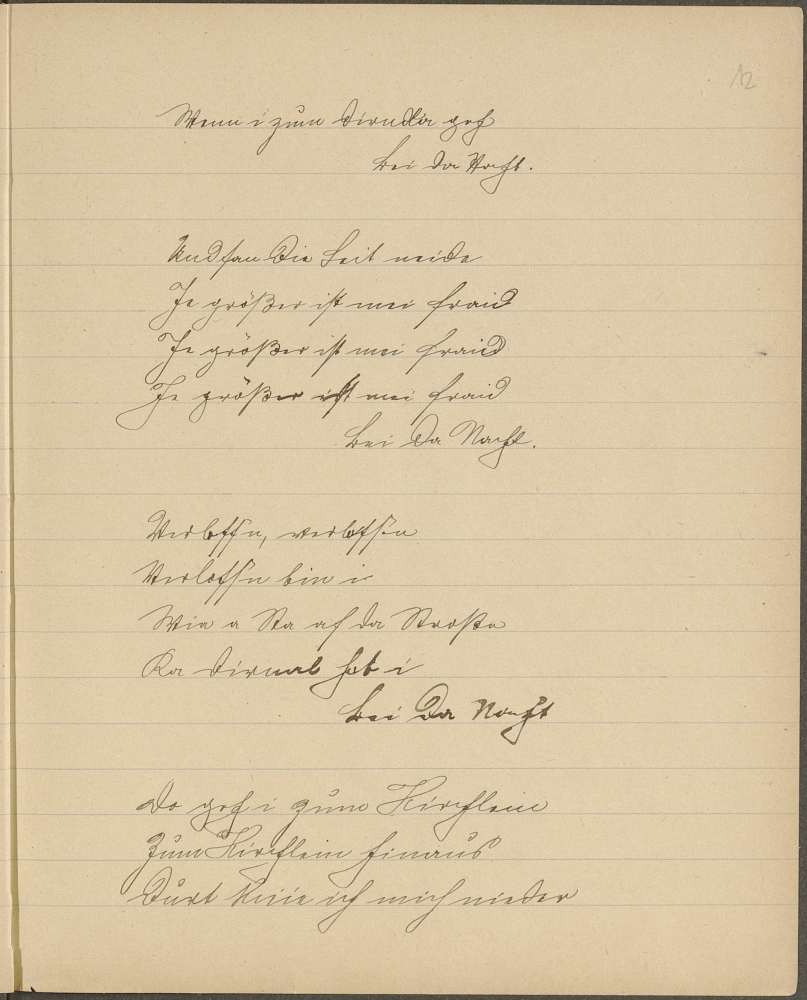 12
Wenn i zum Dirndla geh
bei da Nacht.
Und san die Leit neide
Je größer ist mei fraid
Je größer ist mei fraid
Je größer ist mei fraid
bei da Nacht.
Verloss'n, verloss'n
Verloss'n bin i
Wia a Sta af da Stroße
Ka Dirnal hab i
bei da Nacht
Do geh i zum Kirchlein
Zum Kirchlein hinaus
Durt knie ich mich nieder